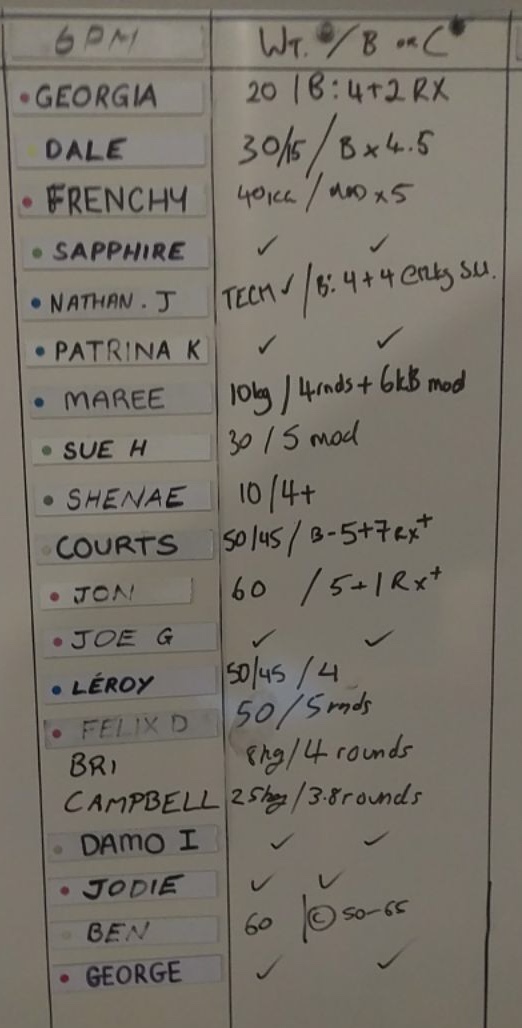 6PM WT. / B or C
GEORGIA 20 / B: 4+2 RX
DALE 30/15 / B x 4.5
FRENCHY 40KG / MOD x 5
SAPPHIRE ✓ ✓
NATHAN. J TECH ✓ / B: 4+4 @12kg S.U.
PATRINA K ✓ ✓
MAREE 10kg / 4rnds + 6KB mod
SUE H 30 / 5 mod
SHENAE 10/4+
COURTS 50/45 / B-5+7 Rx+
JON 60 / 5+1 Rx+
JOE G ✓ ✓
LÉROY 50/45 / 4
FELIX D 50 / 5 rnds
BRI 8kg / 4 rounds
CAMPBELL 25kg / 3.8 rounds
DAMO I ✓ ✓
JODIE ✓ ✓
BEN 60 / © 50-65
GEORGE ✓ ✓